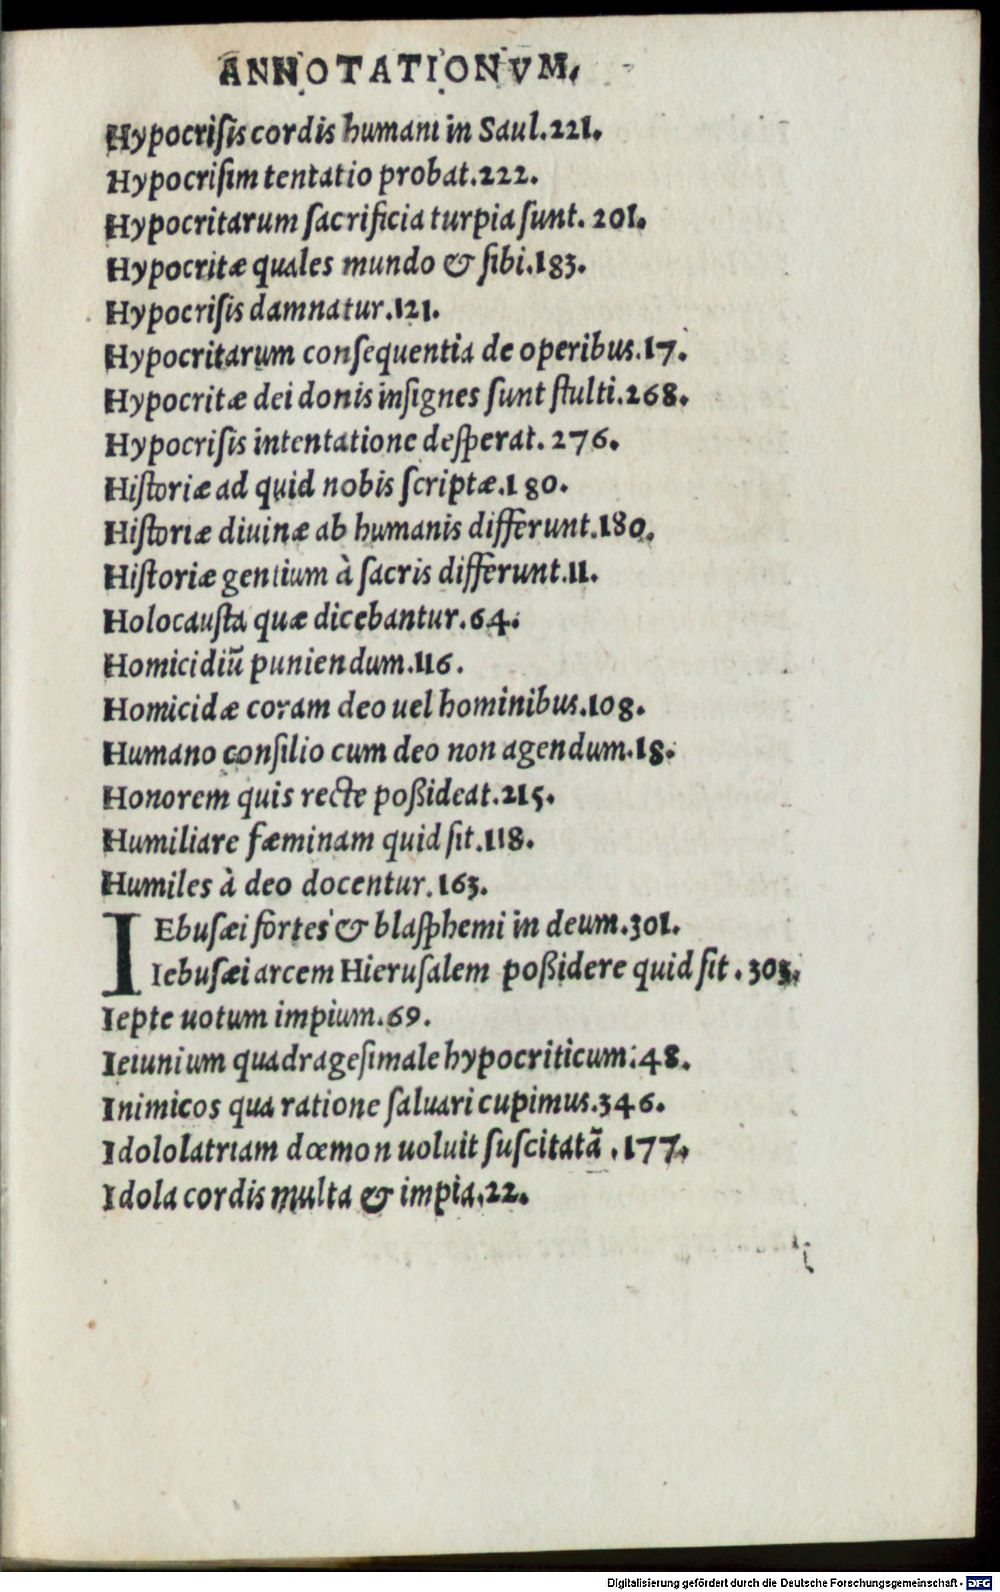 ANNOTATIONVM.
Hypocriſis cordis humani in Saul.221.
Hypocriſim tentatio probat.222.
Hypocritarum ſacrificia turpia ſunt. 201.
Hypocritæ quales mundo & ſibi.183.
Hypocriſis damnatur.121.
Hypocritarum conſequentia de operibus.17.
Hypocritæ dei donis inſignes ſunt ſtulti.268.
Hypocriſis intentatione deſperat. 276.
Hiſtoriæ ad quid nobis ſcriptæ.180.
Hiſtoriæ diuinæ ab humanis differunt.180.
Hiſtoriæ gentium à ſacris differunt.11.
Holocauſta quæ dicebantur.64.
Homicidiũ puniendum.116.
Homicidæ coram deo uel hominibus.108.
Humano conſilio cum deo non agendum.18.
Honorem quis recte poßideat.215.
Humiliare fæminam quid ſit.118.
Humiles à deo docentur.163.
IEbuſæi fortes & blaſphemi in deum.301.
Iebuſæi arcem Hieruſalem poßidere quid ſit.303.
Iepte uotum impium.69.
Ieiunium quadrageſimale hypocriticum.48.
Inimicos qua ratione ſaluari cupimus.346.
Idololatriam dœmon uoluit ſuſcitatã.177.
Idola cordis multa & impia.22.
Digitalisierung gefördert durch die Deutsche Forschungsgemeinschaft - DFG